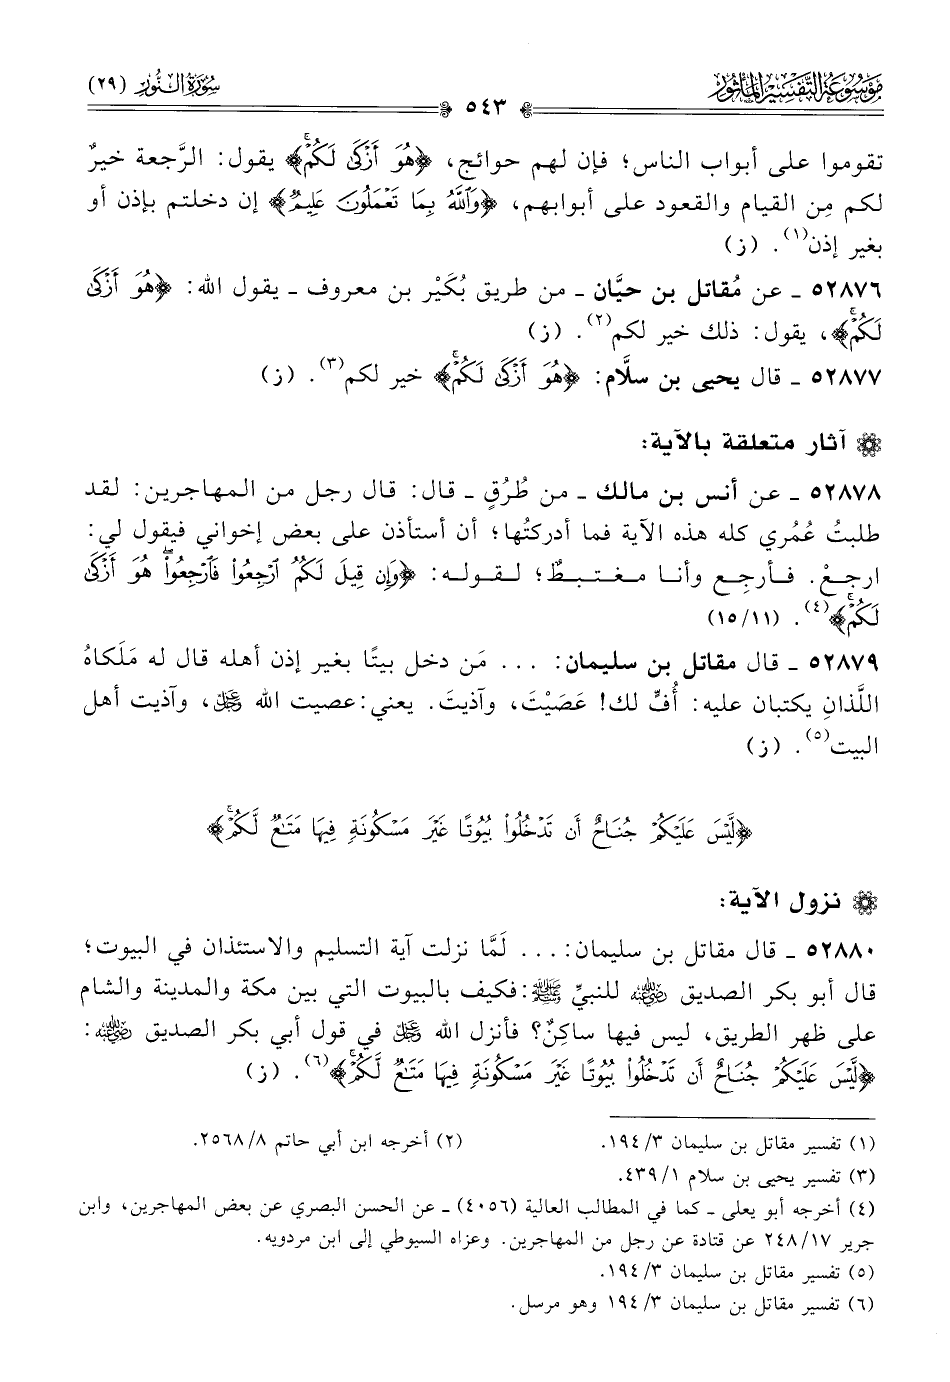 مَوْسُوعَة التَّفْسِير المَأْثُور
سُورَةُ النُّور (٢٩)
٥٤٣
تقوموا على أبواب الناس؛ فإن لهم حوائج، ﴿هُوَ أَزْكَىٰ لَكُمْۚ﴾ يقول: الرَّجعة خيرٌ
لكم مِن القيام والقعود على أبوابهم، ﴿وَٱللَّهُ بِمَا تَعْمَلُونَ عَلِيمٌ﴾ إن دخلتم بإذن أو
بغير إذن(١). (ز)
٥٢٨٧٦ ـ عن مُقاتل بن حيَّان ـ من طريق بُكَيْر بن معروف ـ يقول الله: ﴿هُوَ أَزْكَىٰ
لَكُمْۚ﴾، يقول: ذلك خير لكم(٢). (ز)
٥٢٨٧٧ ـ قال يحيى بن سلَّام: ﴿هُوَ أَزْكَىٰ لَكُمْۚ﴾ خير لكم(٣). (ز)
آثار متعلقة بالآية:
٥٢٨٧٨ ـ عن أنس بن مالك ـ من طُرُقٍ ـ قال: قال رجل من المهاجرين: لقد
طلبتُ عُمُري كله هذه الآية فما أدركتُها؛ أن أستأذن على بعض إخواني فيقول لي:
ارجعْ. فـأرجـع وأنـا مـغـتـبـطٌ؛ لـقـولـه: ﴿وَإِن قِيلَ لَكُمُ ٱرْجِعُوا۟ فَٱرْجِعُوا۟ۖ هُوَ أَزْكَىٰ
لَكُمْۚ﴾(٤). (١٥/١١)
٥٢٨٧٩ ـ قال مقاتل بن سليمان: ... مَن دخل بيتًا بغير إذن أهله قال له مَلَكاهُ
اللَّذانِ يكتبان عليه: أُفٍّ لك! عَصَيْتَ، وآذيتَ. يعني: عصيت الله ﷿، وآذيت أهل
البيت(٥). (ز)
﴿لَّيْسَ عَلَيْكُمْ جُنَاحٌ أَن تَدْخُلُوا۟ بُيُوتًا غَيْرَ مَسْكُونَةٍ فِيهَا مَتَٰعٌ لَّكُمْۚ﴾
نزول الآية:
٥٢٨٨٠ ـ قال مقاتل بن سليمان: ... لَمَّا نزلت آية التسليم والاستئذان في البيوت؛
قال أبو بكر الصديق ﵁ للنبيِّ ﷺ: فكيف بالبيوت التي بين مكة والمدينة والشام
على ظهر الطريق، ليس فيها ساكِنٌ؟ فأنزل الله ﷿ في قول أبي بكر الصديق ﵁:
﴿لَّيْسَ عَلَيْكُمْ جُنَاحٌ أَن تَدْخُلُوا۟ بُيُوتًا غَيْرَ مَسْكُونَةٍ فِيهَا مَتَٰعٌ لَّكُمْۚ﴾(٦). (ز)
(١) تفسير مقاتل بن سليمان ٣/ ١٩٤. (٢) أخرجه ابن أبي حاتم ٨/ ٢٥٦٨.
(٣) تفسير يحيى بن سلام ١/ ٤٣٩.
(٤) أخرجه أبو يعلى ـ كما في المطالب العالية (٤٠٥٦) ـ عن الحسن البصري عن بعض المهاجرين، وابن
جرير ١٧/ ٢٤٨ عن قتادة عن رجل من المهاجرين. وعزاه السيوطي إلى ابن مردويه.
(٥) تفسير مقاتل بن سليمان ٣/ ١٩٤.
(٦) تفسير مقاتل بن سليمان ٣/ ١٩٤ وهو مرسل.